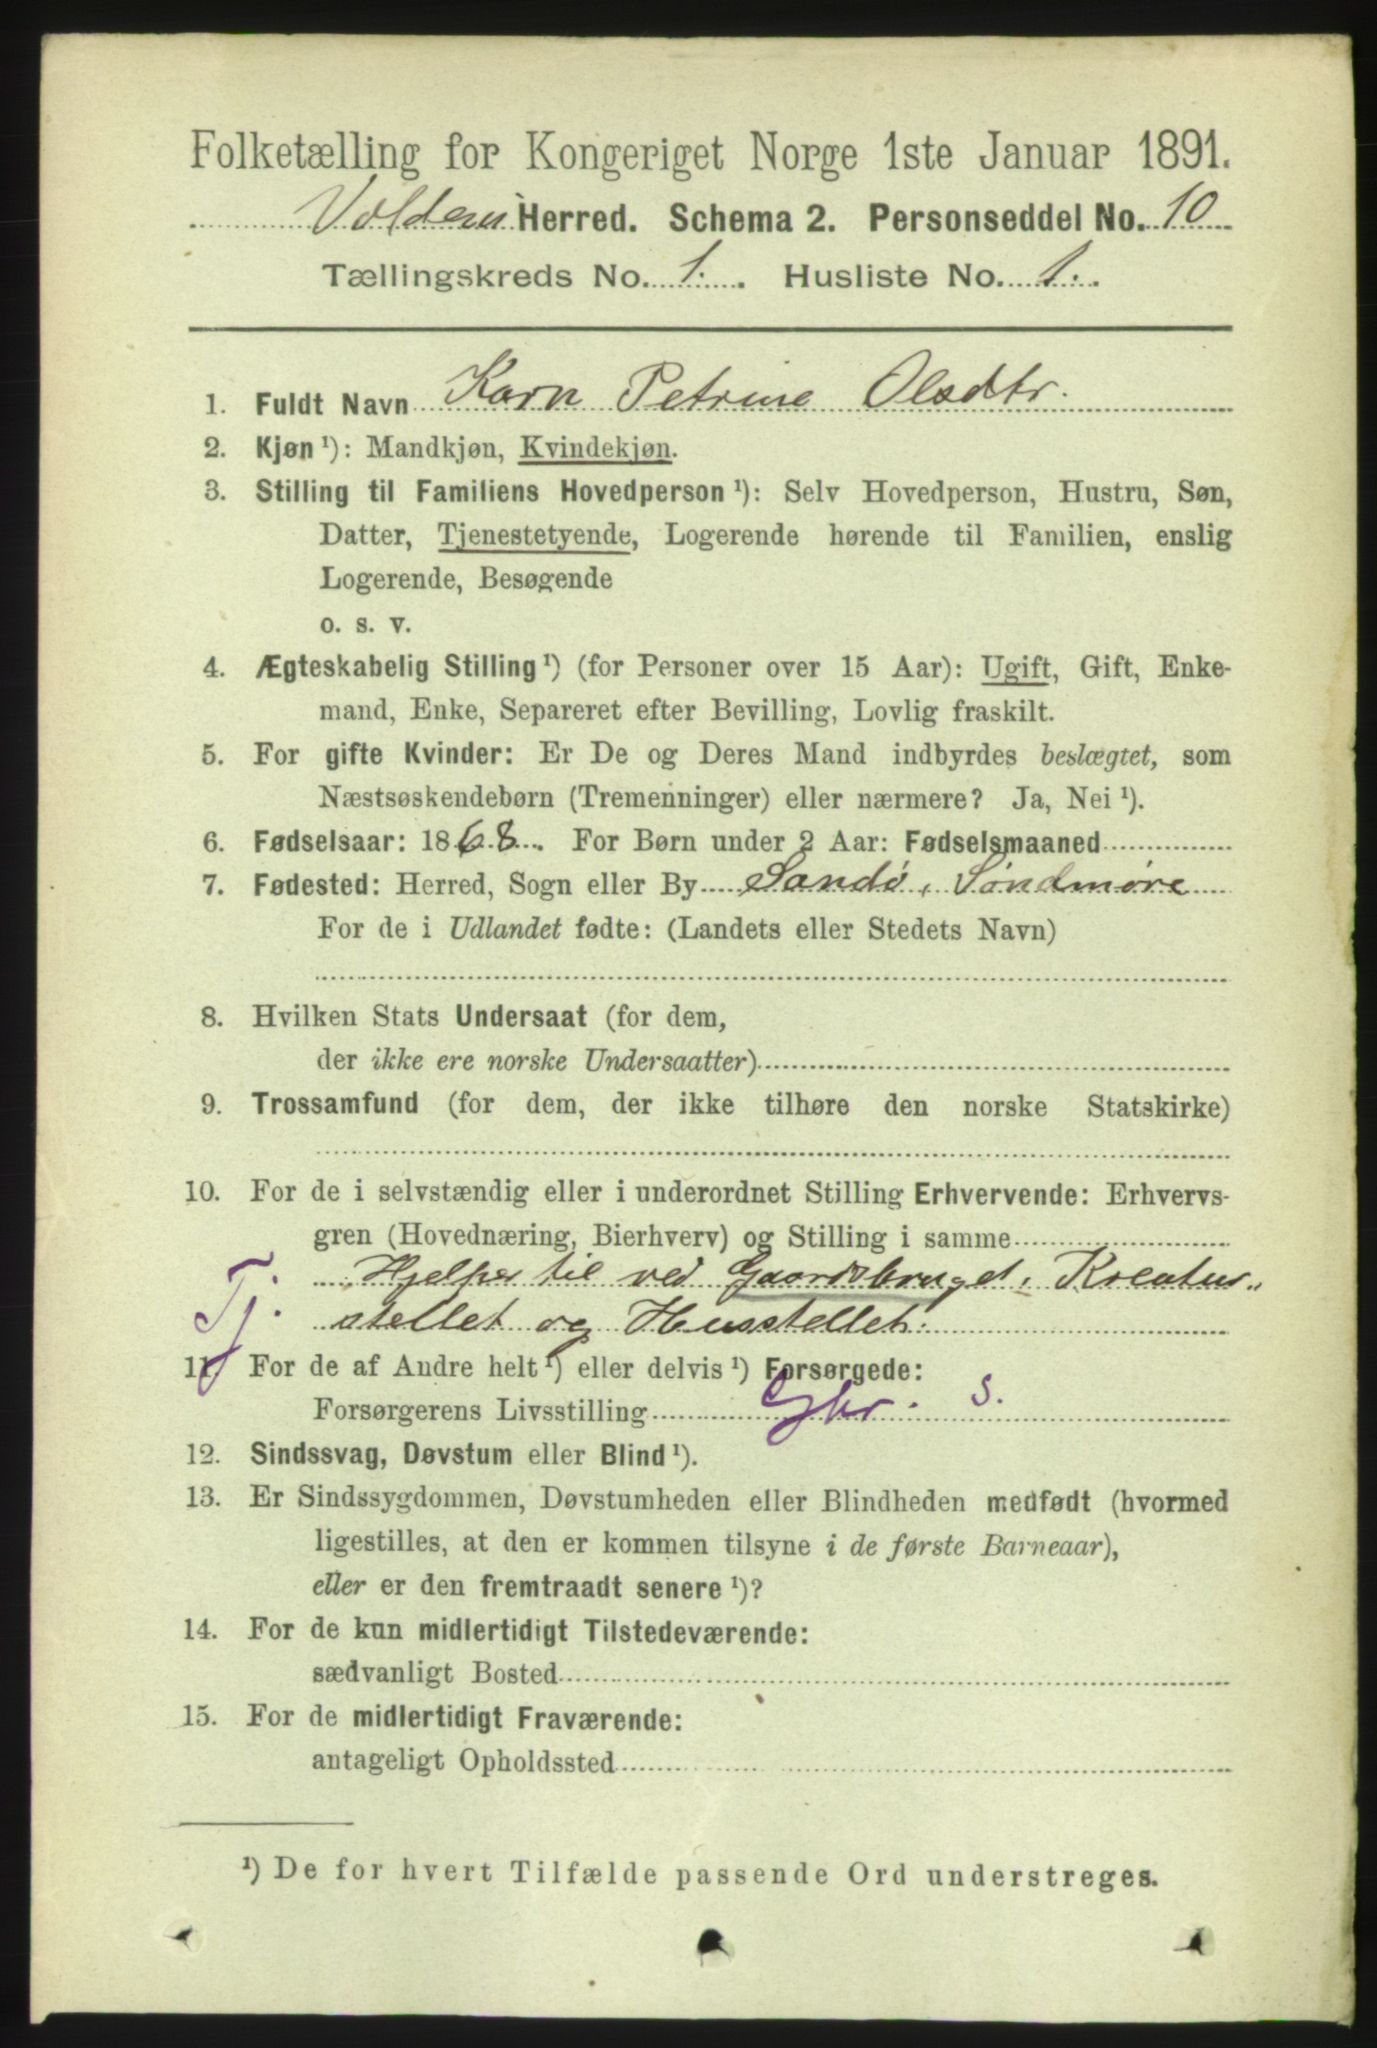 Folketælling for Kongeriget Norge 1ste Januar 1891.
Voldens Herred. Schema 2. Personseddel No. 10
Tællingskreds No. 1. Husliste No. 1.
1. Fuldt Navn Karn Petrine Olsdtr.
2. Kjøn ¹): Mandkjøn, Kvindekjøn.
3. Stilling til Familiens Hovedperson ¹): Selv Hovedperson, Hustru, Søn,
Datter, Tjenestetyende, Logerende hørende til Familien, enslig
Logerende, Besøgende
o. s. v.
4. Ægteskabelig Stilling ¹) (for Personer over 15 Aar): Ugift, Gift, Enke-
mand, Enke, Separeret efter Bevilling, Lovlig fraskilt.
5. For gifte Kvinder: Er De og Deres Mand indbyrdes beslægtet, som
Næstsøskendebørn (Tremenninger) eller nærmere? Ja, Nei ¹).
6. Fødselsaar: 1868. For Børn under 2 Aar: Fødselsmaaned
7. Fødested: Herred, Sogn eller By Sandø, Søndmøre
For de i Udlandet fødte: (Landets eller Stedets Navn)
8. Hvilken Stats Undersaat (for dem,
der ikke ere norske Undersaatter)
9. Trossamfund (for dem, der ikke tilhøre den norske Statskirke)
10. For de i selvstændig eller i underordnet Stilling Erhvervende: Erhvervs-
gren (Hovednæring, Bierhverv) og Stilling i samme
Hjelper til ved Gaardsbruget, Kreatur-
Tj. stellet og Husstellet.
11. For de af Andre helt ¹) eller delvis ¹) Forsørgede:
Forsørgerens Livsstilling Gbr. s.
12. Sindssvag, Døvstum eller Blind ¹).
13. Er Sindssygdommen, Døvstumheden eller Blindheden medfødt (hvormed
ligestilles, at den er kommen tilsyne i de første Barneaar),
eller er den fremtraadt senere ¹)?
14. For de kun midlertidigt Tilstedeværende:
sædvanligt Bosted
15. For de midlertidigt Fraværende:
antageligt Opholdssted
¹) De for hvert Tilfælde passende Ord understreges.